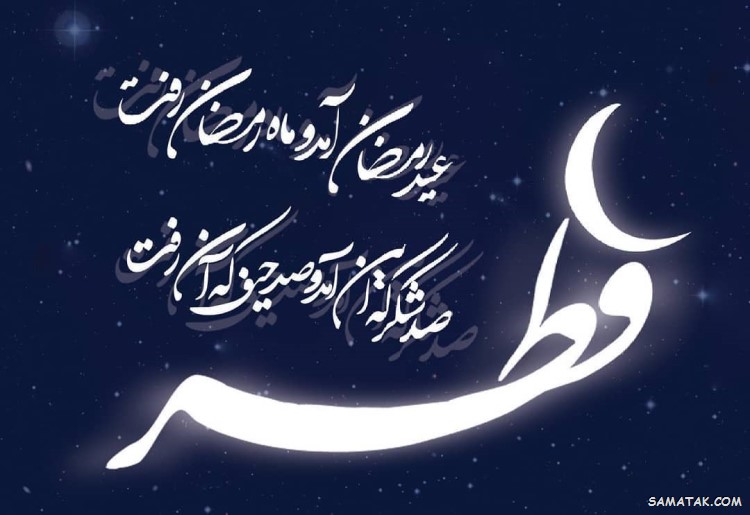 عید رمضان آمد و ماه رمضان رفت
صد شکر که این آمد و صد حیف که آن رفت
فطر
SAMATAK.COM